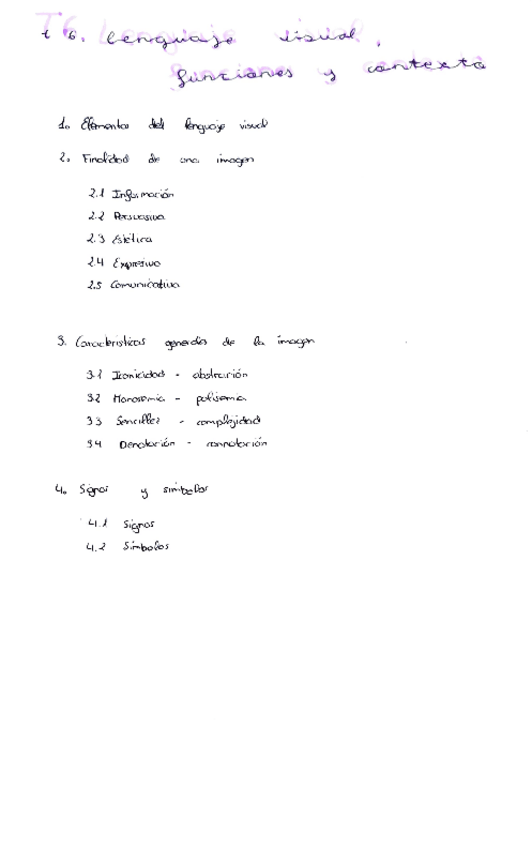 T 6. Lenguaje visual,
funciones y contexto
1. Elementos del lenguaje visual
2. Finalidad de una imagen
2.1 Información
2.2 Persuasiva
2.3 Estética
2.4 Expresivo
2.5 Comunicativa
3. Características generales de la imagen
3.1 Iconicidad - abstracción
3.2 Monosemia - polisemia
3.3 Sencillez - complejidad
3.4 Denotación - connotación
4. Signos y símbolos
4.1 Signos
4.2 Símbolos